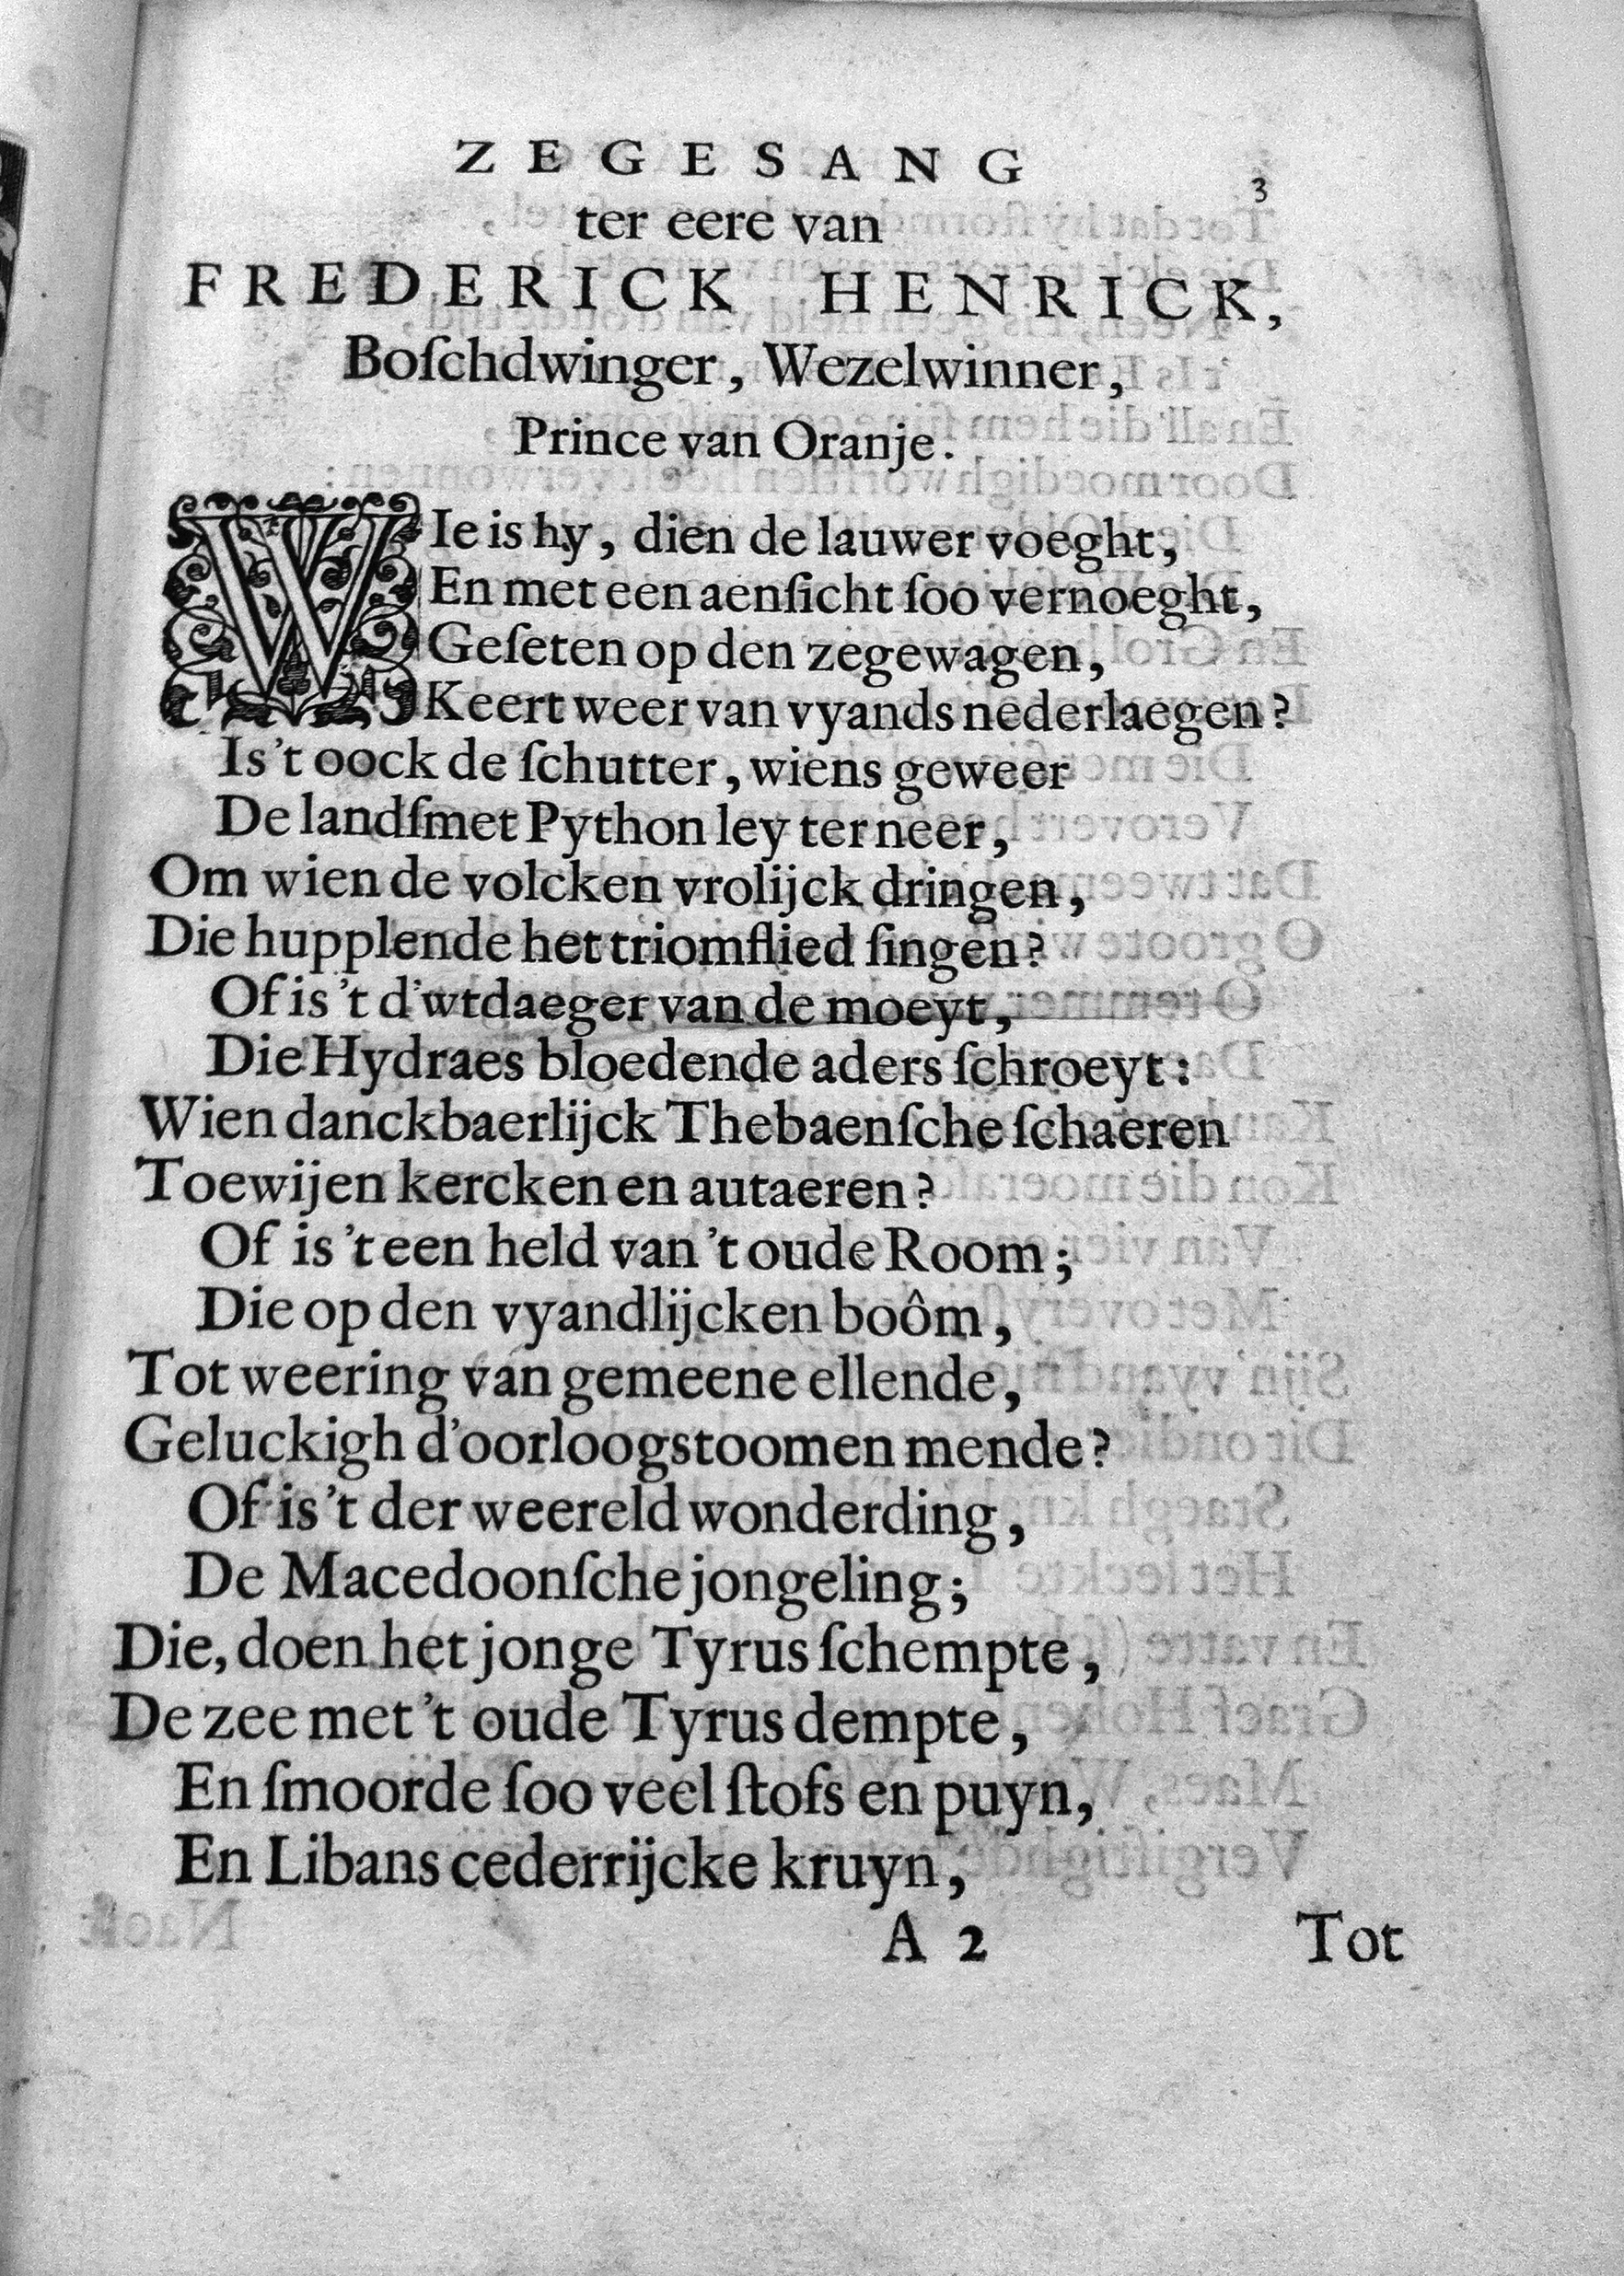 ZEGESANG
3
ter eere van
FREDERICK HENRICK,
Boſchdwinger, Wezelwinner,
Prince van Oranje.
WIe is hy, dien de lauwer voeght,
En met een aenſicht ſoo vernoeght,
Geſeten op den zegewagen,
Keert weer van vyands nederlaegen?
Is't oock de ſchutter, wiens geweer
De landſmet Python ley ter neer,
Om wien de volcken vrolijck dringen,
Die hupplende het triomflied ſingen?
Of is 't d'wtdaeger van de moeyt,
Die Hydraes bloedende aders ſchroeyt:
Wien danckbaerlijck Thebaenſche ſchaeren
Toewijen kercken en autaeren?
Of is 't een held van 't oude Room;
Die op den vyandlijcken boôm,
Tot weering van gemeene ellende,
Geluckigh d'oorloogstoomen mende?
Of is 't der weereld wonderding,
De Macedoonſche jongeling;
Die, doen het jonge Tyrus ſchempte,
De zee met 't oude Tyrus dempte,
En ſmoorde ſoo veel ſtofs en puyn,
En Libans cederrijcke kruyn,
A 2 Tot